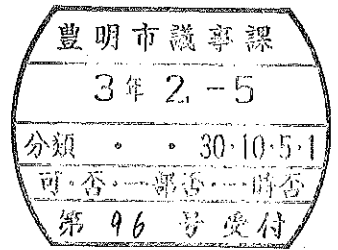 豊明市議事課
3年 2.-5
分類 ・ ・ 30・10・5・1
可・否・一部否・時否
第 96 号受付